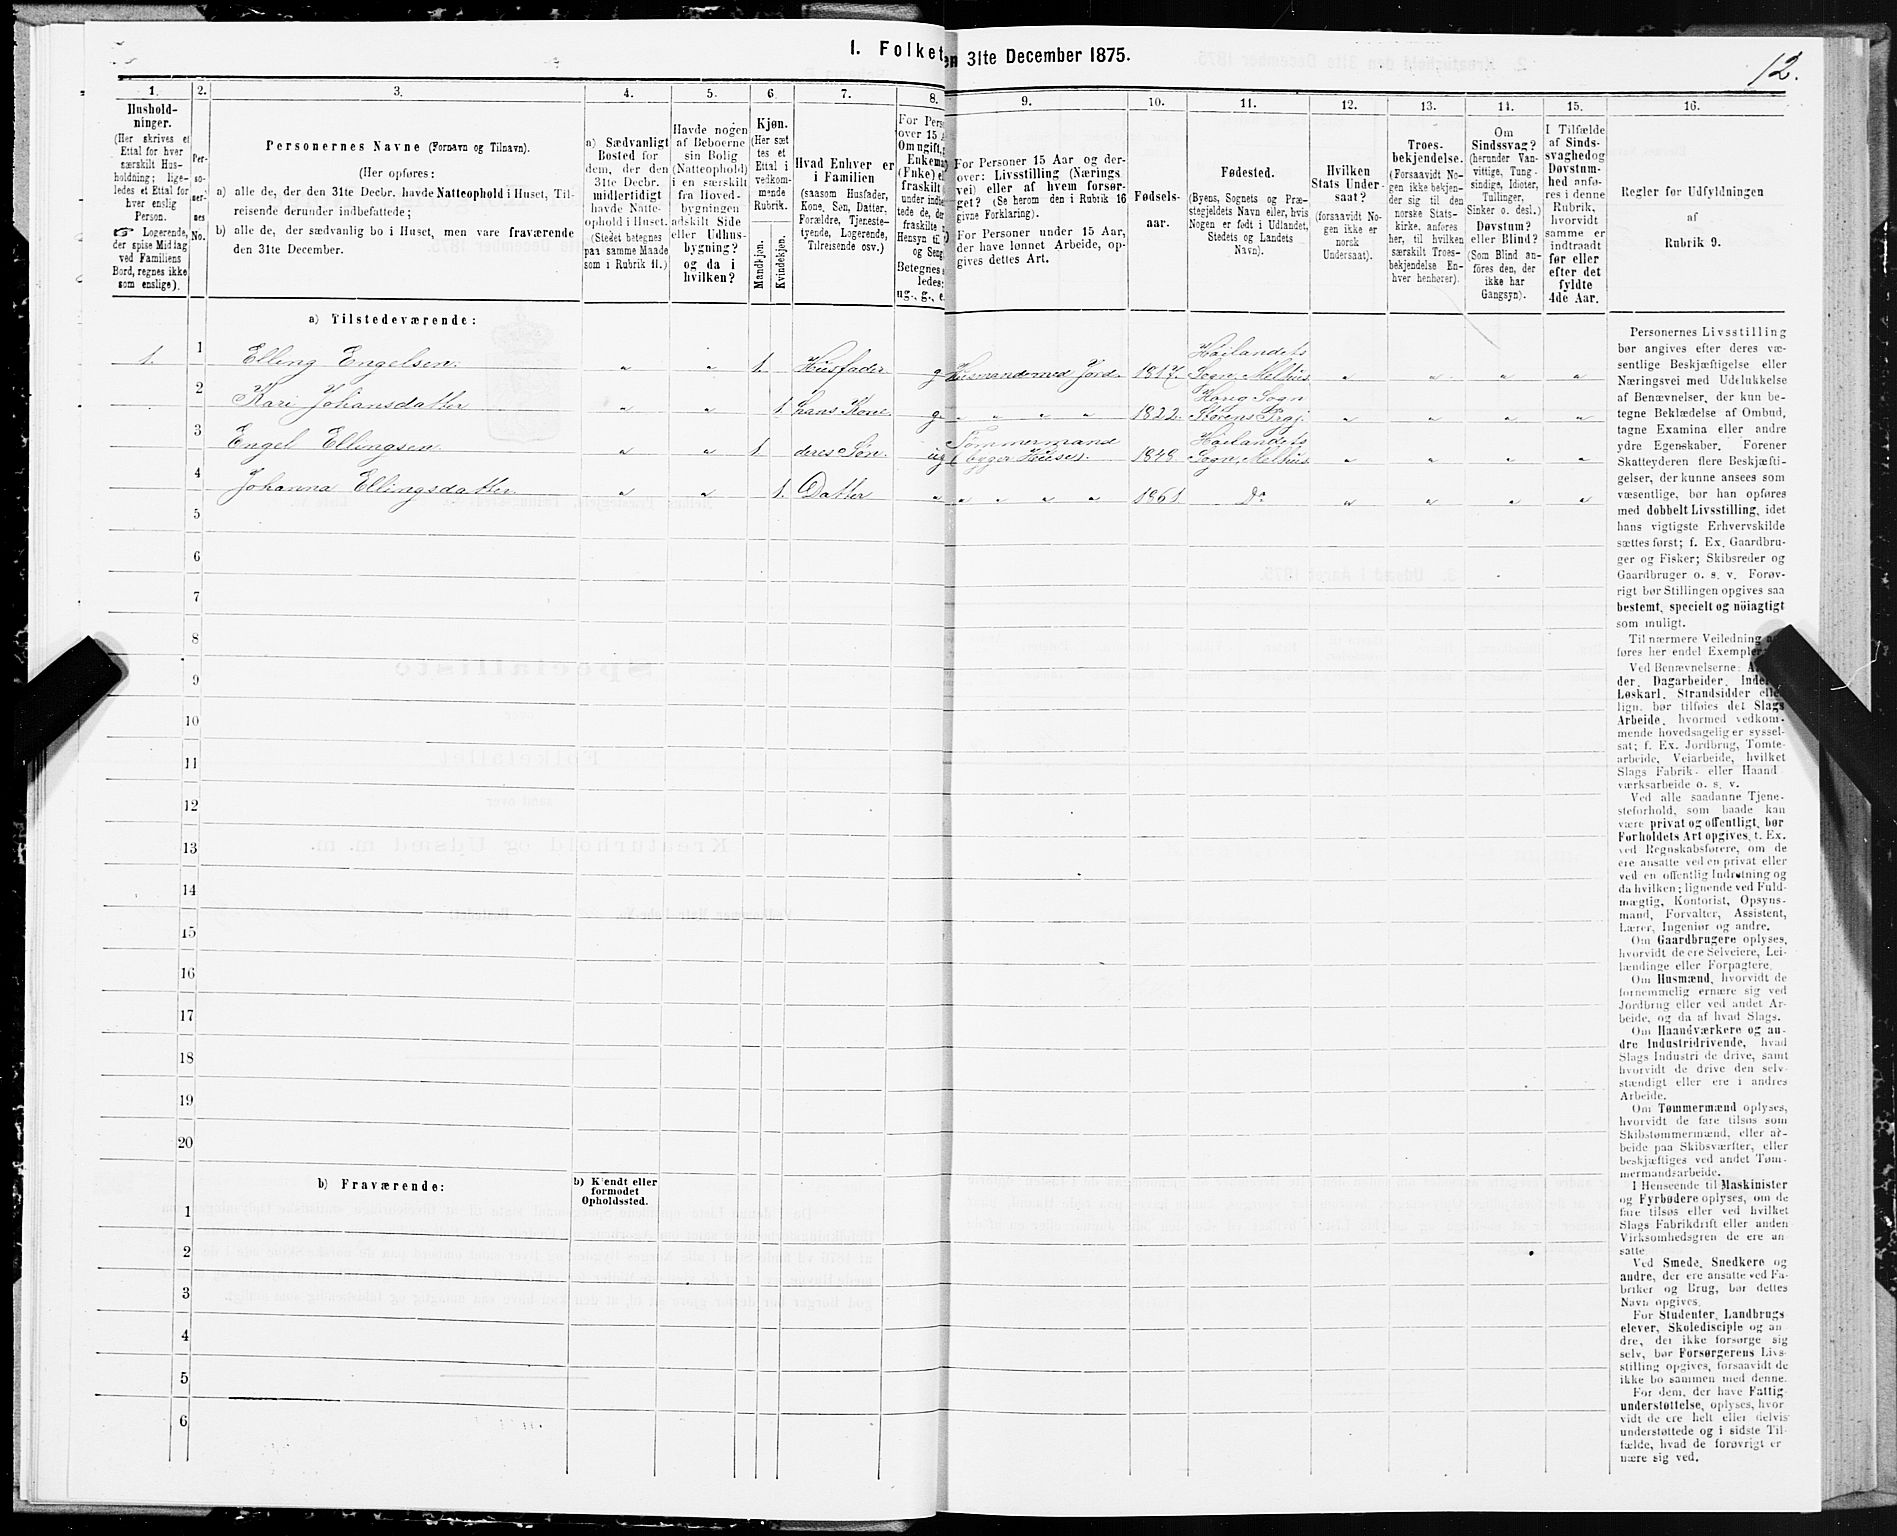 1. Folket
en 31te December 1875.
12.
1.
Hushold-
ninger.
(Her skrives et
Ettal for hver
særskilt Hus-
holdning; lige-
ledes et Ettal for
hver enslig
Person.
☞ Logerende,
der spise Middag
ved Familiens
Bord, regnes ikke
som enslige).
2.
Per-
so-
ner-
nes
No.
3.
Personernes Navne (Fornavn og Tilnavn).
(Her opføres:
a) alle de, der den 31te Decbr. havde Natteophold i Huset, Til-
reisende derunder indbefattede;
b) alle de, der sædvanlig bo i Huset, men vare fraværende
den 31te December.
4.
a) Sædvanligt
Bosted for
dem, der den
31te Decbr.
midlertidigt
havde Natte-
ophold i Huset.
(Stedet betegnes
paa samme Maade
som i Rubrik 11.)
5.
Havde nogen
af Beboerne
sin Bolig
(Natteophold)
i en særskilt
fra Hoved-
bygningen
adskilt Side
eller Udhus-
bygning?
og da i
hvilken?
6.
Kjøn.
(Her sæt
tes et
Ettal i
vedkom-
mende
Rubrik.
Mandkjøn.
Kvindekjøn.
7.
Hvad Enhver er
i Familien
(saasom Husfader,
Kone, Søn, Datter,
Forældre, Tjeneste-
tyende, Logerende,
Tilreisende osv.)
8.
For Pers
over 15 A
Om ugift,
Enkema
(Fnke) e
fraskilt
under indbe
tede de, de
fraskilte
Hensyn til
og Seng
Betegnes s
ledes:
ug., g., e.
9.
For Personer 15 Aar og der-
over: Livsstilling (Nærings
vei) eller af hvem forsør-
get? (Se herom den i Rubrik 16
givne Forklaring).
For Personer under 15 Aar,
der have lønnet Arbeide, op-
gives dettes Art.
10.
Fødsels-
aar.
11.
Fødested.
(Byens, Sognets og Præ-
stegjeldets Navn eller, hvis
Nogen er født i Udlandet,
Stedets og Landets
Navn).
12.
Hvilken
Stats Under-
saat?
(forsaavidt No-
gen ikke er
norsk
Undersaat).
13.
Troes-
bekjendelse.
(Forsaavidt No-
gen ikke bekjen-
der sig til den
norske Stats-
kirke, anføres
her, til hvilken
særskilt Troes-
bekjendelse En-
hver henhører).
14.
Om
Sindssvag?
(herunder Van-
vittige, Tung-
sindige, Idioter,
Tullinger,
Sinker o. desl.)
Døvstum?
eller Blind?
(Som Blind an-
føres den, der
ikke har
Gangsyn).
15.
I Tilfælde
af Sinds-
svaghedog
Døvstum-
hed anfø-
res i denne
Rubrik,
hvorvidt
samme er
indtraadt
før eller
efter det
fyldte
4de Aar.
16.
Regler for Udfyldningen
af
Rubrik 9.
a) Tilstedeværende:
1. 1 Elling Engelsen. „ „ 1. Husfader g. Husmand med Jord. 1817. Høilandets Sogn, Melhus „ „ „ „
2 Kari Johansdatter „ „ 1. hans Kone g. „ „ „ „ 1822. Houg Sogn Størens Præj. „ „ „ „
3 Engel Ellingsen. „ „ 1. deres Søn. ug Tømmermand (bygger Huse). 1848. Høilandets Sogn, Melhus „ „ „ „
4 Johanna Ellingsdatter. „ „ 1. Datter „ „ „ „ „ 1861. Do „ „ „ „
5
6
7
8
9
10
11
12
13
14
15
16
17
18
19
20
b) Fraværende:
b) Kjendt eller
formodet
Opholdssted.
1
2
3
4
5
6
Personernes Livsstilling
bør angives efter deres væ-
sentlige Beskjæftigelse eller
Næringsvei med Udelukkelse
af Benævnelser, der kun be-
tegne Beklædelse af Ombud,
tagne Examina eller andre
ydre Egenskaber. Forener
Skatteyderen flere Beskjæfti-
gelser, der kunne ansees som
væsentlige, bør han opføres
med dobbelt Livsstilling, idet
hans vigtigste Erhvervskilde
sættes først; f. Ex. Gaardbru-
ger og Fisker; Skibsreder og
Gaardbruger o. s. v. Forøv-
rigt bør Stillingen opgives saa
bestemt, specielt og nöiagtigt
som muligt.
Til nærmere Veiledning
føres her endel Exempler
Ved Benævnelserne:
der, Dagarbeider, Inder
Løskarl, Strandsidder eller
lign. bør tilføies det Slags
Arbeide, hvormed vedkom-
mende hovedsagelig er syssel-
sat; f. Ex. Jordbrug, Tomte-
arbeide, Veiarbeide, hvilket
Slags Fabrik- eller Haand
værksarbeide o. s. v.
Ved alle saadanne Tjene-
steforhold, som baade kan
være privat og offentligt, bør
Forholdets Art opgives, t. Ex.
ved Regnskabsførere, om de
ere ansatte ved en privat eller
ved en offentlig Indretning og
da hvilken; lignende ved Fuld-
mægtig, Kontorist, Opsyns-
mand, Forvalter, Assistent,
Lærer, Ingeniør og andre.
Om Gaardbrugere oplyses,
hvorvidt de ere Selveiere, Lei-
lændinge eller Forpagtere.
Om Husmænd, hvorvidt de
fornemmelig ernære sig ved
Jordbrug eller ved andet Ar-
beide, og da af hvad Slags.
Om Haandværkere og an-
dre Industridrivende, hvad
Slags Industri de drive, samt
hvorvidt de drive den selv-
stændigt eller ere i andres
Arbeide.
Om Tømmermænd oplyses,
hvorvidt de fare tilsøs som
Skibstømmermænd, eller ar-
beide paa Skibsværfter, eller
beskjæftiges ved andet Tøm-
mermandsarbeide.
I Henseende til Maskinister
og Fyrbødere oplyses, om de
fare tilsøs eller ved hvilket
Slags Fabrikdrift eller anden
Virksomhedsgren de ere an-
satte
Ved Smede, Snedkere og
andre, der ere ansatte ved Fa-
briker og Brug, bør dettes
Navn opgives.
For Studenter, Landbrugs
elever, Skoledisciple og an-
dre, der ikke forsørge sig
selv, bør Forsørgerens Livs-
stilling opgives, forsaavidt de
ikke bo sammen med denne.
For dem, der have Fattig-
understøttelse, oplyses, hvor
vidt de ere helt eller delvis
understøttede og i sidste Til-
fælde, hvad de forøvrigt er
nære sig ved.